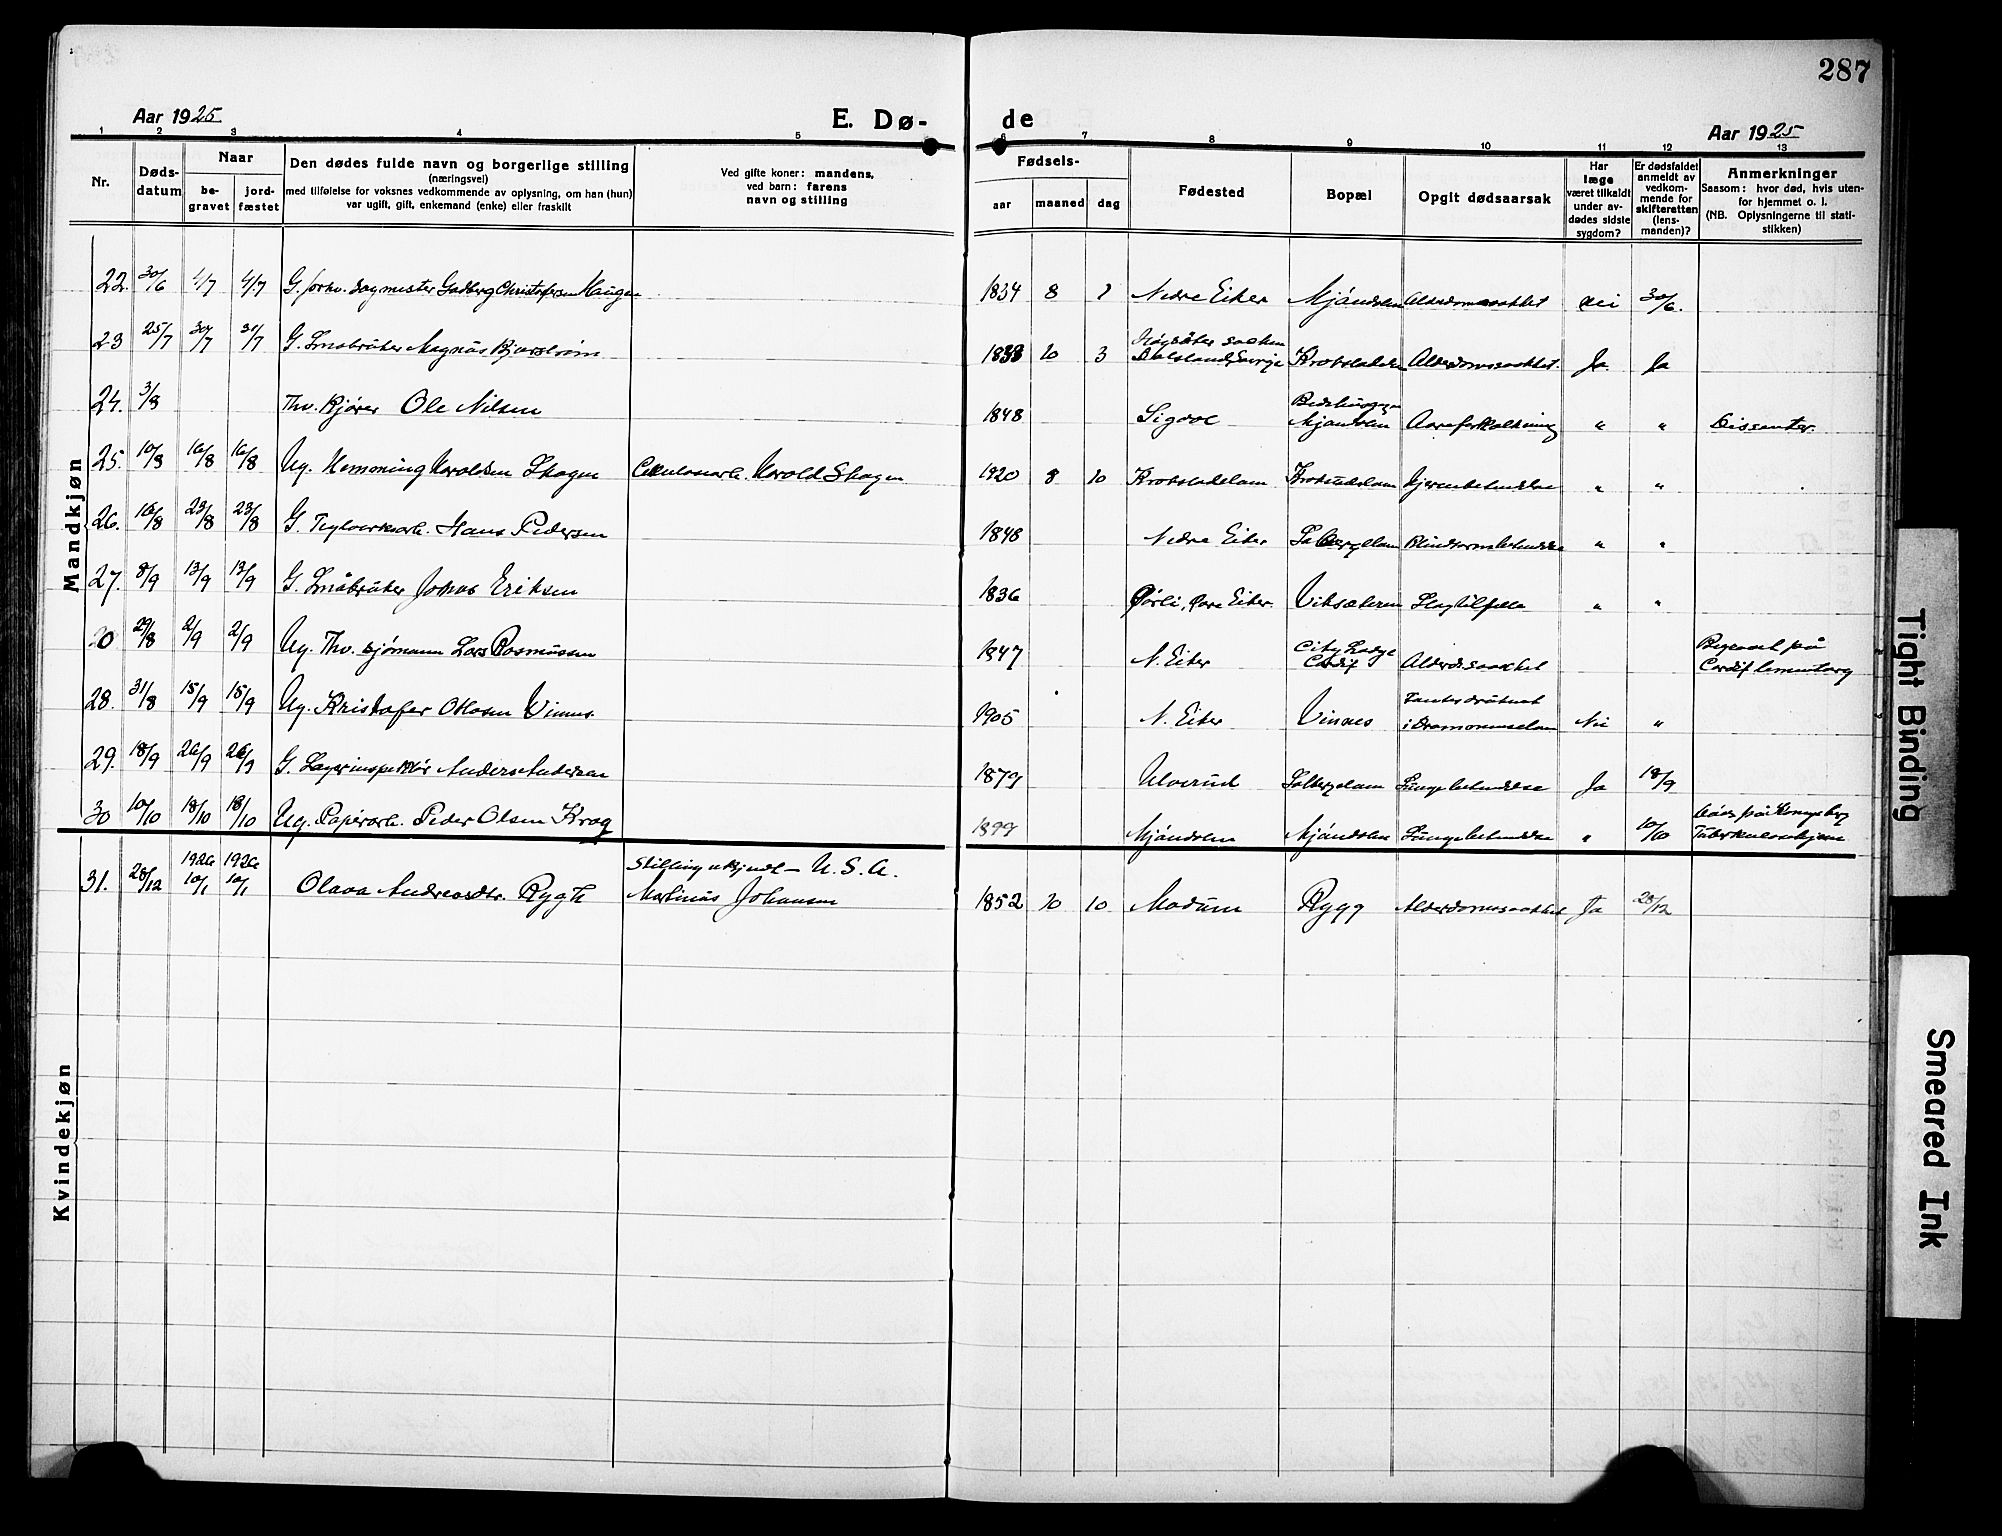 287
Aar 1925
E. Dø-
de
Aar 1925
1 2 3 4 5 6 7 8 9 10 11 12 13
Nr.
Døds-
datum
Naar
be-
gravet
jord-
fæstet
Den dødes fulde navn og borgerlige stilling
(næringsvei)
med tilføielse for voksnes vedkommende av oplysning, om han (hun)
var ugift, gift, enkemand (enke) eller fraskilt
Ved gifte koner: mandens,
ved barn: farens
navn og stilling
Fødsels-
aar
maaned
dag
Fødested
Bopæl
Opgit dødsaarsak
Har
læge
været tilkaldt
under av-
dødes sidste
sygdom?
Er dødsfaldet
anmeldt av
vedkom-
mende for
skifteretten
(lens-
manden)?
Anmerkninger
Saasom: hvor død, hvis uten-
for hjemmet o. l.
(NB. Oplysningerne til stati-
stikken)
Mandkjøn
22. 30/6 4/7 4/7 G. forhv. sagmester Gudbrg Christofersen Haugen 1834 8 7 Nedre Eiker Mjøndalen Alderdomssvakhet nei 30/6.
23 25/7 30/7 31/7 G. Småbruker Magnus 1838 10 3 Krokstadelva Alderdomssvakhet. Ja. Ja
24. 3/8 Thv. Kjører Ole Nilsen 1848 Sigdal Bedehusgaten Mjøndalen Aareforkalkning " " Dissenter.
25. 10/8 16/8 16/8 Ug. Hemming Haroldsen Skogen Cellulosearb. Harold Skogen 1920 8 10 Krokstadelven Krokstadelven Hjernebetendelse " "
26. 16/8 23/8 23/8 G. Teglverksarb. Hans Pedersen 1848 Nedre Eiker Solbergelven Blindtarmsbetendelse " "
27. 8/9 13/9 13/9 G. Småbruker Johas Eriksen 1836 Dørli, Øvre Eiker. Vikseteren Slagtilfelle " "
20 29/8 2/9 2/9 Ug. Thv. sjømann Lars Rasmussen 1847 N. Eiker City Lodge Cardif Alderdssvakhet Begravet på Cardif Cementary
28. 31/8 15/9 15/9 Ug. Kristofer Olausen Vinnes. 1905 N. Eiker Vinnes Tømmerdruknet i Drammenselven Nei "
29. 18/9 26/9 26/9 G. Lagerinspektør Anders Andersen 1879 Ulverud Solbergelven Lungebetendelse Ja 18/9
30 10/10 18/10 18/10 Ug. Papirarb. Peder Olsen Krog 1899 Mjøndalen Mjøndalen Lungebetendelse " 10/10 Døde på Kongsberg Tuberkulosehjem
Kvindekjøn
31. 28/12 1926 10/1 1926 10/1 Olava Andreasdtr. Rygh Stilling ukjendt – U.S.A. Martinius Johansen 1852 10 10 Modum Rygg Alderdomssvakhet Ja 28/12
Tight Binding
Smeared Ink